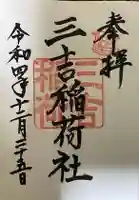 奉拝
三吉稲荷社
令和四年十二月二十五日